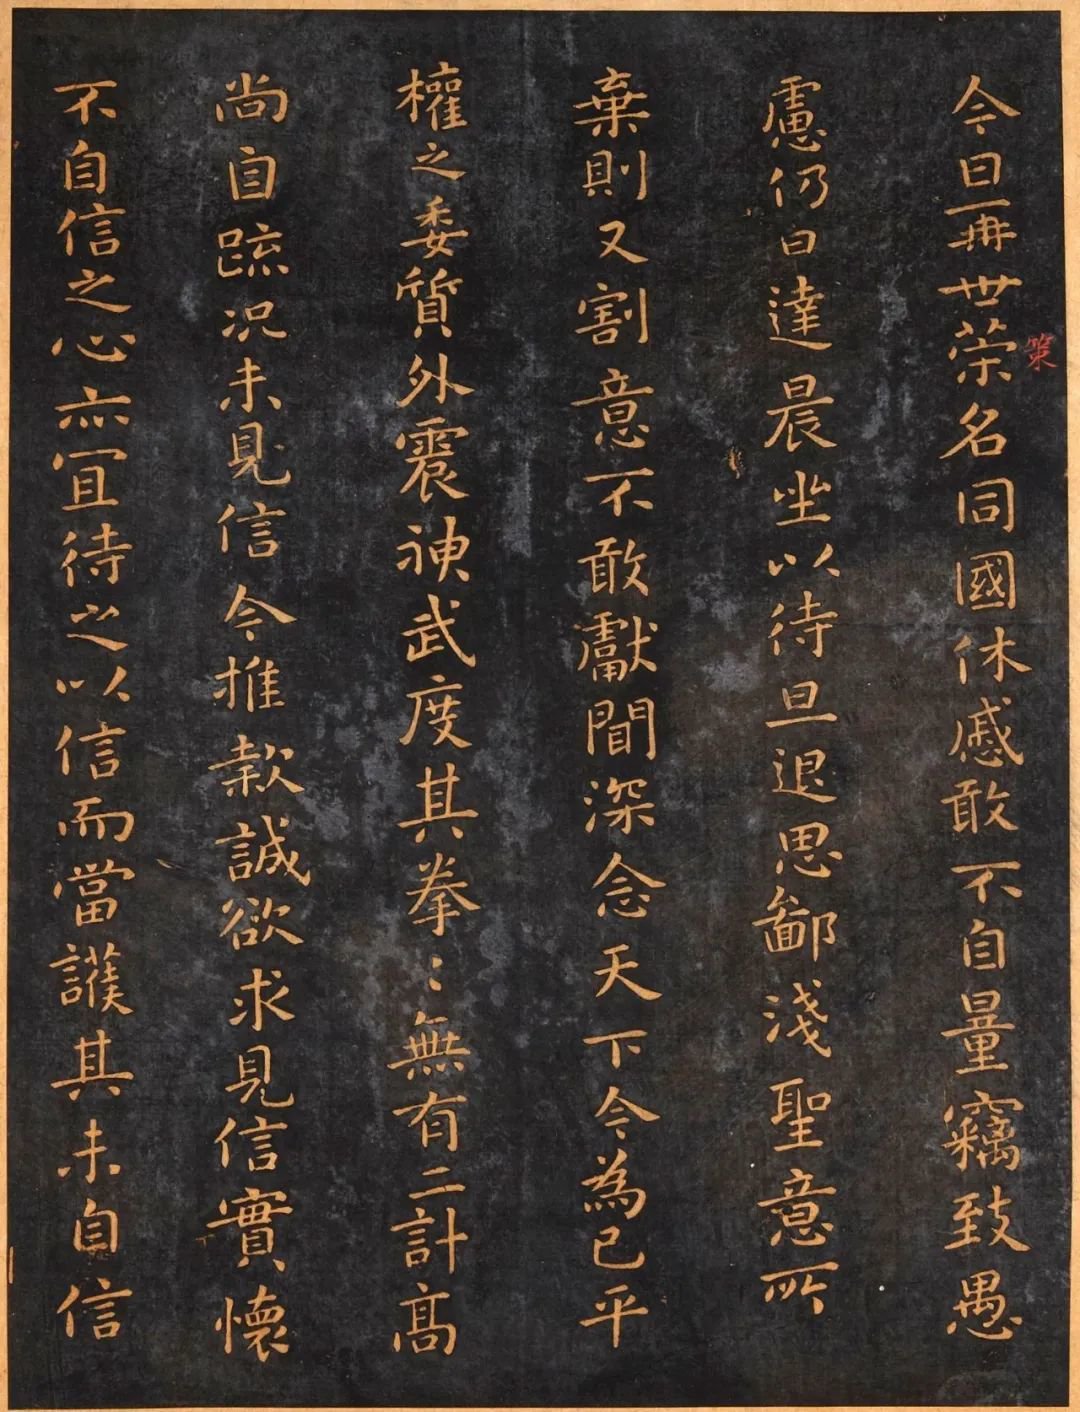 今日再世荣名同國休慼敢不自量竊致愚
策
慮仍日達晨坐以待旦退思鄙淺聖意所
棄則又割意不敢獻聞深念天下今為已平
權之委質外震神武度其拳〻無有二計高
尚自疏況未見信今推款誠欲求見信實懷
不自信之心亦宜待之以信而當護其未自信